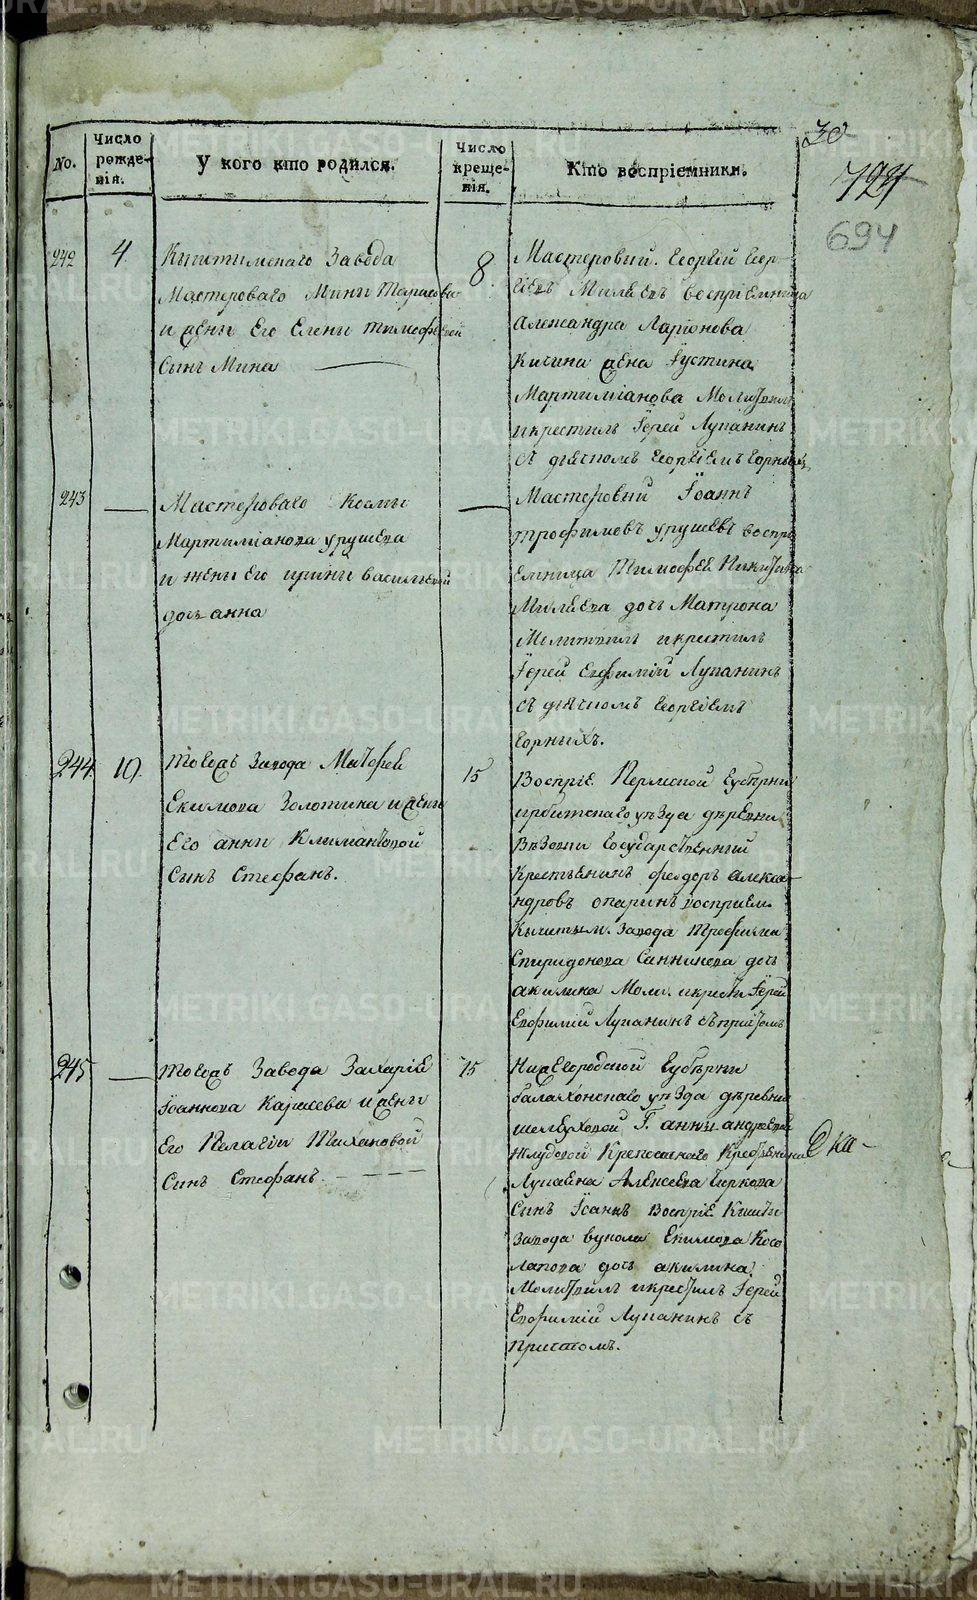 30
724
694
No.
Число рожде-нія.
У кого кто родился.
Число креще-нія.
Кто воспріемники.
242
4
Киштимскаго Завода
Мастероваго Мины Тарасова
и жены Его Елены Тимофѣевой
Сынъ Мина
8
Мастеровий. Георгій Геор-
гіевъ Милѣевъ воспріемница
Александра Ларіонова
Кичина жена Іустина
Мартиміанова Молитвил
и крестилъ Іерей Лупанинъ
съ дьячкомъ Георгіемъ Горныхъ
243
Мастероваго Космы
Мартиміанова Урушева
и жены Его Ирины Васильевой
дочь анна
Мастеровий Іоаннъ
Трофимовъ Урушевъ воспрі
Емница Тимофея Никитина
Милѣева дочь Матрона
Молитвилъ и крестилъ
Іерей Евфимій Лупанинъ
съ дьячкомъ Георгіемъ
Горныхъ.
244
10
Тогожъ Завода Матфея
Екимова Золотина и жены
Его анны Климантовой
Сынъ Стефанъ.
15
Воспріе. Пермской Губѣрніи
ирбитскаго уѣзда дѣревни
Государственный
Крестьенинъ федоръ алекса-
ндровъ опаринъ восприем.
Кыштым. Завода Трофима
Спиридонова Санникова дочь
акилина Моли. и крести Іерей
Евфимій Лупанинъ съ притомъ
245
Тогожъ Завода Захаріе
Іоаннова Карасева и жены
Его Пелагіи Тихановой
Сынъ Стефанъ
15
Нижегородской Губѣрни
Балахонскаго уѣзда дѣревни
Г. анны андреевой
Крепоснаго Крестьянина
Алексѣева
Сынъ Іоаннъ Воспріе Кишты
Завода вукола Екимова Косо
лапова дочь акилина.
Молитвилъ и крестилъ Іерей
Евфимій Лупанинъ съ
Притомъ.
METRIKI.GASO-URAL.RU